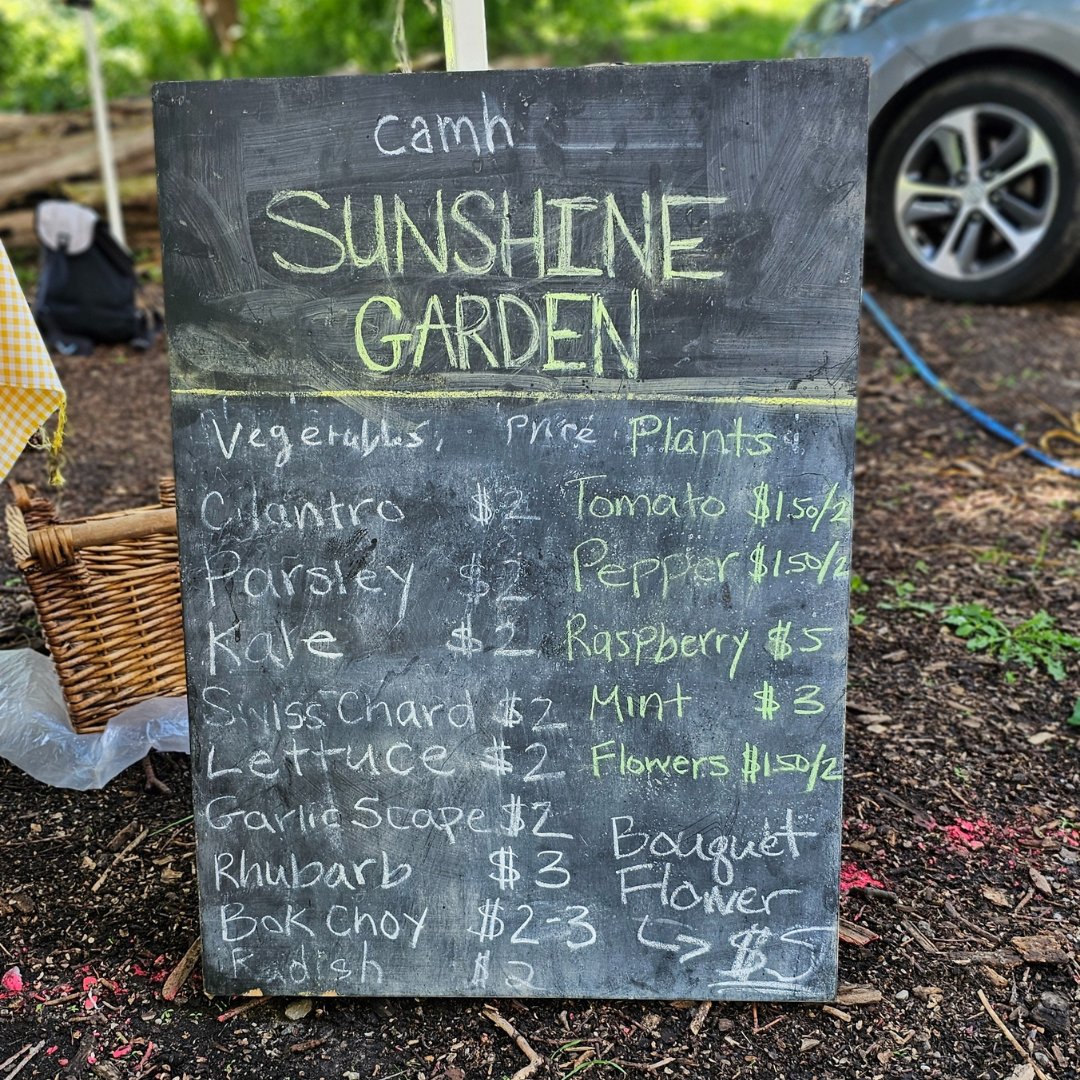 camh
SUNSHINE
GARDEN
Vegetables, Price
Cilantro $2
Parsley $2
Kale $2
Swiss Chard $2
Lettuce $2
Garlic Scape $2
Rhubarb $3
Bok Choy $2-3
Radish $2
Plants
Tomato $1.50/2
Pepper $1.50/2
Raspberry $5
Mint $3
Flowers $1.50/2
Bouquet
Flower
$5